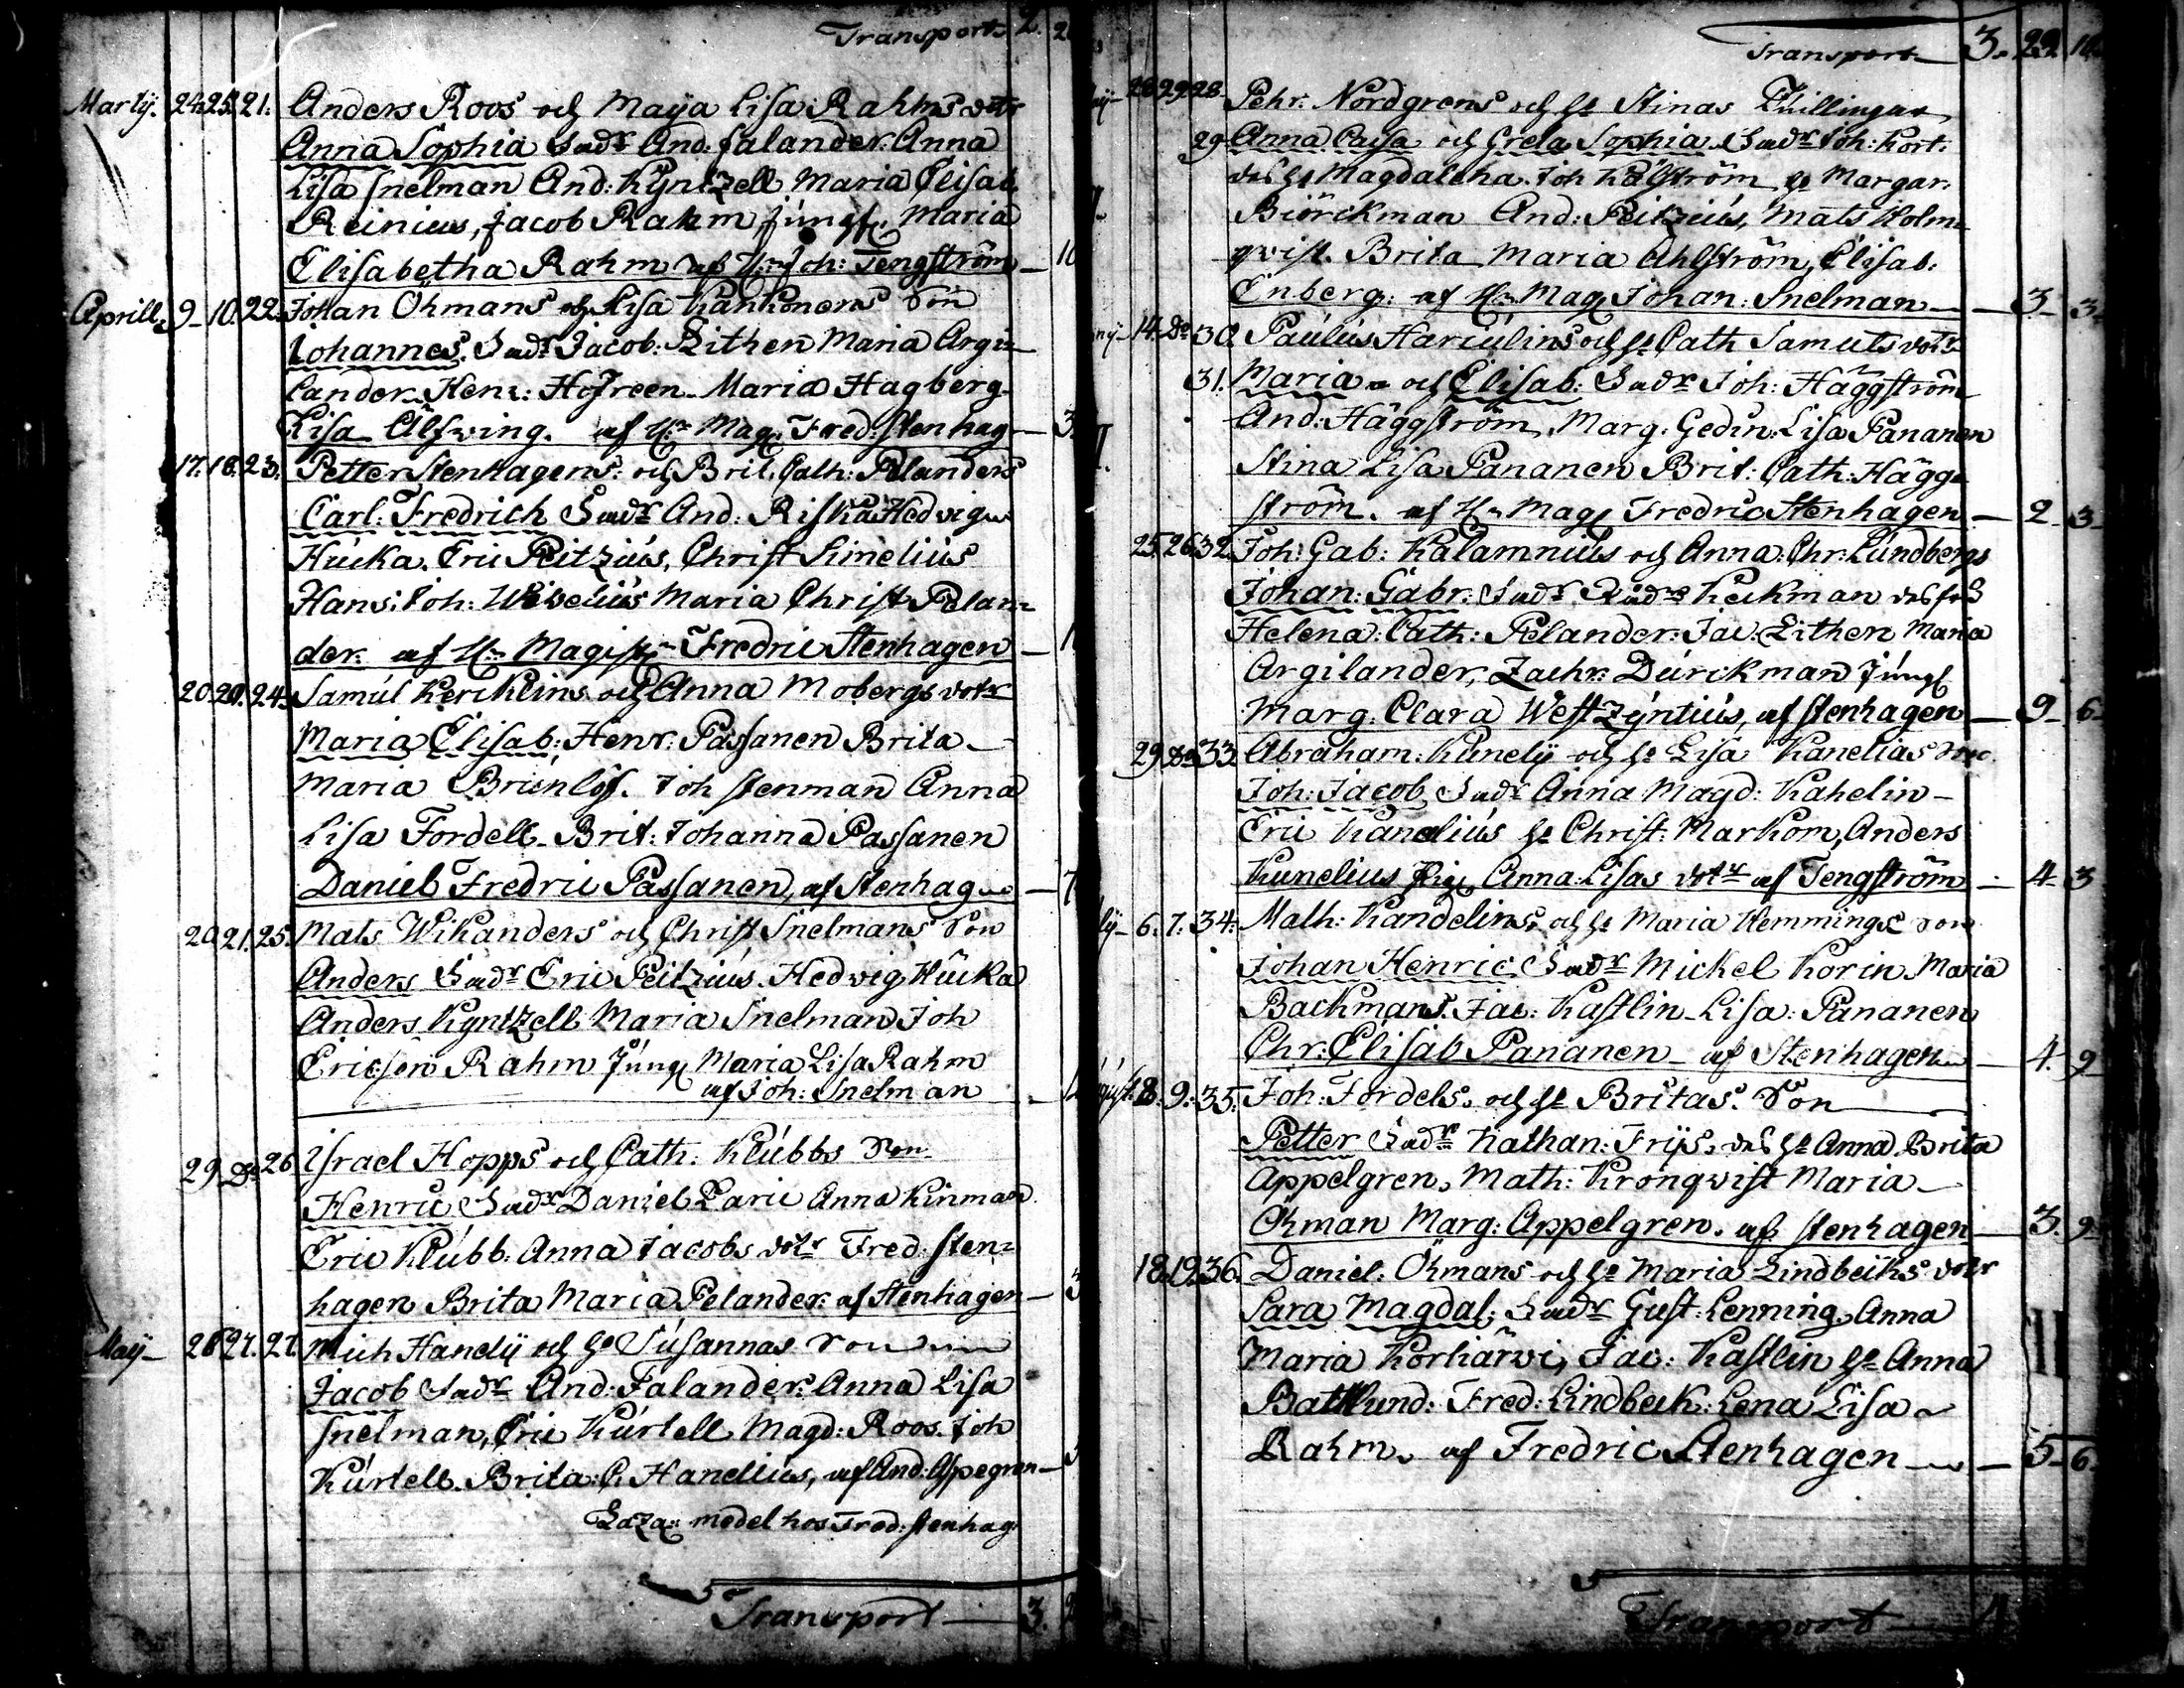 Transport 2.
Martij. 24. 25. 21. Anders Roos och Maija Lisa Rahms dotr
Anna Sophia Sudr And: Falander. Anna
Lisa Snelman And: Kyntzell Maria Elisab
Reinius, Jacob Rahm, Jungf: Maria
Elisabetha Rahm af Hr Joh: Tengström — 10
Aprill 9. 10. 22. Johan Öhmans och Lisa Kankonens Son
Johannes. Sudr Jacob: Lithen Maria Argi=
lander. Henr: Hofreen Maria Hagberg
Lisa Älfwing. af Hr Mag: Fred: Stenhag — 3
17. 18. 23. Petter Stenhagens och Brit: Cath: Pelanders
Carl: Fredrich Sudr And: Riska Hedvig
Hucka, Eric Peitzius, Christ Simelius
Hans: Joh: Wivelius Maria Christ Pelan=
der. af Hr Magist Fredric Stenhagen — 1
20. 21. 24. Samul Kericklins och Anna Mobergs dotr
Maria Elisab: Henr: Passanen Brita
Maria Brunlöf. Joh Stenman Anna
Lisa Fordell. Brit: Johanna Passanen
Daniel Fredric Passanen, af Stenhag — 7
20. 21. 25. Mats Wikanders och Christ Snelmans Son
Anders Sudr Eric Peitzius. Hedvig Hucka
Anders Kyntzell Maria Snelman Joh
Ericsson Rahm Jungf Maria Lisa Rahm
af Joh: Snelman
29. Do 26 Israel Hopps och Cath: Klubbs Son
Henric Sudr Daniel Paric Anna Kinman
Eric Klubb. Anna Jacobs dotr Fred: Sten=
hagen Brita Maria Pelander: af Stenhagen — 3
Maij 26 27. 27. Mich Hanelij och h: Susannas Son
Jacob Sudr And: Falander. Anna Lisa
Snelman, Eric Kurtell Magd: Roos. Joh
Kurtell. Brita: C. Hanelius, af And: Aspegren — 3
medel hos Fred: Stenhag
Transport — 3.
Transport — 3. 22
28 29 28 Pehr. Nordgrens och h: Stinas Thillingar
29 Anna Caisa och Greta Sophia Sudr Joh: Kort.
das h: Magdalena. Joh Kälström h: Margar.
Biörckman And: Peitzius, Mats Holm=
qvist. Brita Maria Ahlström, Elisab:
Enberg: af Hr Mag Johan: Snelman — 3 — 3
14. Do 30 Paulus Harculins och h: Cath Samuts dotr
31. Maria och Elisab: Sudr Joh: Häggström
And: Häggström, Marg. Gedin: Lisa Pananen
Stina Lisa Pananen Brit: Cath: Hägg=
ström. af Hr Mag Fredric Stenhagen — 2 — 3
25. 26. 32. Joh: Gab: Kalamnius och Anna: Chr: Lundbergs
Johan: Gabr: Sudr Keckman das fru
Helena: Cath: Pelander: Jac: Lithen Maria
Argilander, Zachr: Durckman Jungf
Marg. Clara Westzyntius, af Stenhagen — 9 — 6
29 Do 33 Abraham: Kunelij och h: Lisa Kanelias Son
Joh: Jacob, Sudr Anna Magd: Kahelin
Eric Kanelius h: Christ: Markom, Anders
Kunelius Pig: Anna Lisas dotr af Tengström — 4 — 3
6. 7. 34. Math: Kandelins och h: Maria Hemmings Son
Johan Henric. Sudr Mickel Korin Maria
Backmans. Jac: Kastlin. Lisa: Pananen
Chr: Elisab Pananen af Stenhagen — 4. 9
8. 9. 35. Joh: Fordels. och h: Britas. Son
Petter Sudr Nathan: Frijs, das h: Anna Brita
Appelgren, Math: Kronqvist Maria
Öhman Marg: Appelgren. af Stenhagen — 3. 9
18. 19. 36. Daniel: Öhmans och h: Maria Lindbecks dotr
Sara Magdal: Sudr Gust: Lenning, Anna
Maria Korhärwi, Jac: Kastlin h: Anna
Backlund. Fred: Lindbeck. Lena Lisa
Rahm. af Fredric Stenhagen — 5 — 6
Transport — 4